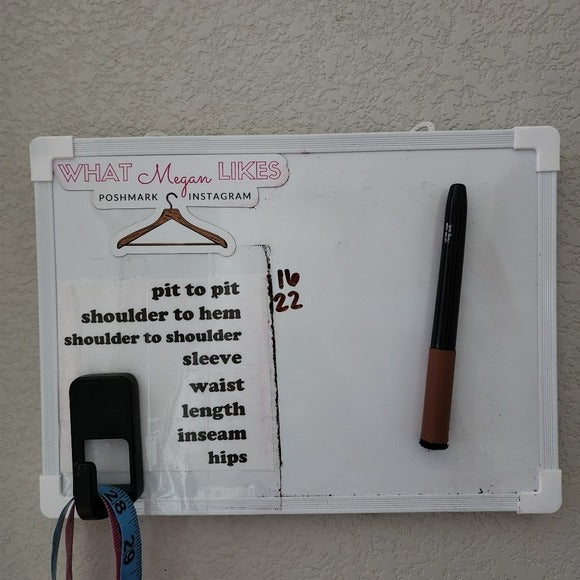 WHAT Megan LIKES
POSHMARK INSTAGRAM
pit to pit 16
shoulder to hem 22
shoulder to shoulder
sleeve
waist
length
inseam
hips
28
29